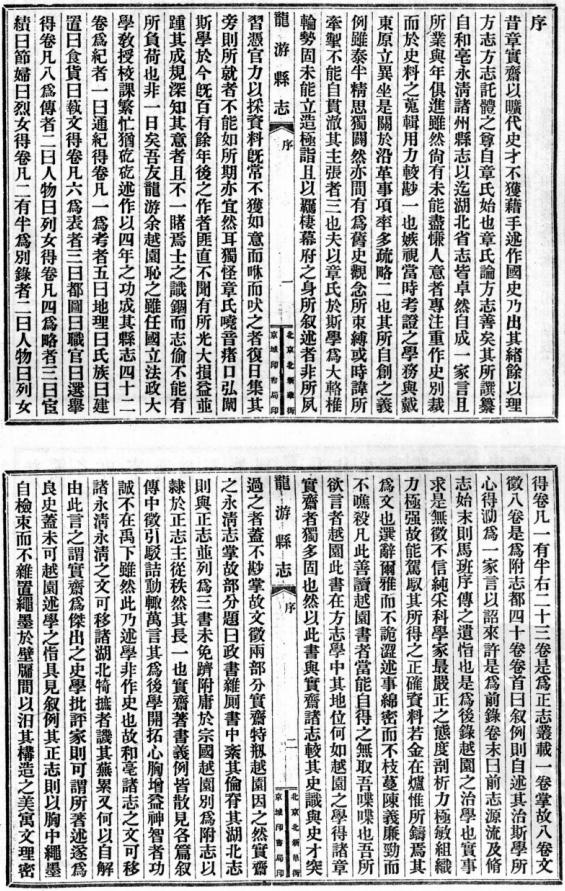 序
昔章實齋以曠代史才不獲藉手述作國史乃出其緒餘以理
方志方志託體之尊自章氏始也章氏論方志善矣其所譔纂
自和亳永清諸州縣志以迄湖北省志皆卓然自成一家言且
所業與年俱進雖然尙有未能盡慊人意者專注重作史別裁
而於史料之蒐輯用力較尠一也嫉視當時考證之學務與戴
東原立異坐是關於沿革事項率多疏略二也其所自創之義
例雖泰半精思獨闢然亦間有爲舊史觀念所束縛或時諱所
牽掣不能自貫澈其主張者三也夫以章氏於斯學爲大輅椎
輪勢固未能立造極詣且以羈棲幕府之身所叙述者非所夙
龍游縣志 序 一
北京北新華街
京城印書局印
習憑官力以採資料旣常不獲如意而咻而吠之者復日集其
旁則所就者不能如所期亦宜然耳獨怪章氏嘵音瘏口弘闡
斯學於今旣百有餘年後之作者匪直不聞有所光大損益並
踵其成規深知其意者且不一睹焉士之識錮而志偷不能有
所負荷也非一日矣吾友龍游余越園恥之雖任國立法政大
學敎授校課繁忙猶矻矻述作以四年之功成其縣志四十二
卷爲紀者一曰通紀得卷凡一爲考者五曰地理曰氏族曰建
置曰食貨曰藝文得卷凡六爲表者三曰都圖曰職官曰選舉
得卷凡八爲傳者二曰人物曰列女得卷凡四爲略者三曰宦
績曰節婦曰烈女得卷凡二有半爲別錄者二曰人物曰列女
得卷凡一有半右二十三卷是爲正志叢載一卷掌故八卷文
徵八卷是爲附志都四十卷卷首曰叙例則自述其治斯學所
心得刱爲一家言以詔來許是爲前錄卷末曰前志源流及脩
志始末則馬班序傳之遺恉也是爲後錄越園之治學也實事
求是無徵不信純宋科學家最嚴正之態度剖析力極敏組織
力極强故能駕馭其所得之正確資料若金在爐惟所鑄焉其
爲文也選辭爾雅而不詭澀述事綿密而不枝蔓陳義廉勁而
不噍殺凡此善讀越園書者當能自得之無取吾喋喋也吾所
欲言者越園此書在方志學中其地位何如越園之學得諸章
實齋者獨多固也然以此書與實齋諸志較其史識與史才突
龍游縣志 序 二
北京北新華街
京城印書局印
過之者蓋不尠掌故文徵兩部分實齋特刱越園因之然實齋
之永淸志掌故部分題曰政書雜厠書中紊其倫脊其湖北志
則與正志並列爲三書未免躋附庸於宗國越園別爲附志以
隸於正志主從秩然其長一也實齋著書義例皆散見各篇叙
傳中徵引駁詰動輒萬言其爲後學開拓心胸增益神智者功
誠不在禹下雖然此乃述學非作史也故和亳諸志之文可移
諸永淸永淸之文可移諸湖北犄摭者譏其蕪累又何以自解
由此言之謂實齋爲傑出之史學批評家則可謂所著述遂爲
良史蓋未可越園述學之恉具見叙例其正志則以胸中繩墨
自檢束而不雜置繩墨於壁牖間以汨其構造之美寓文理密